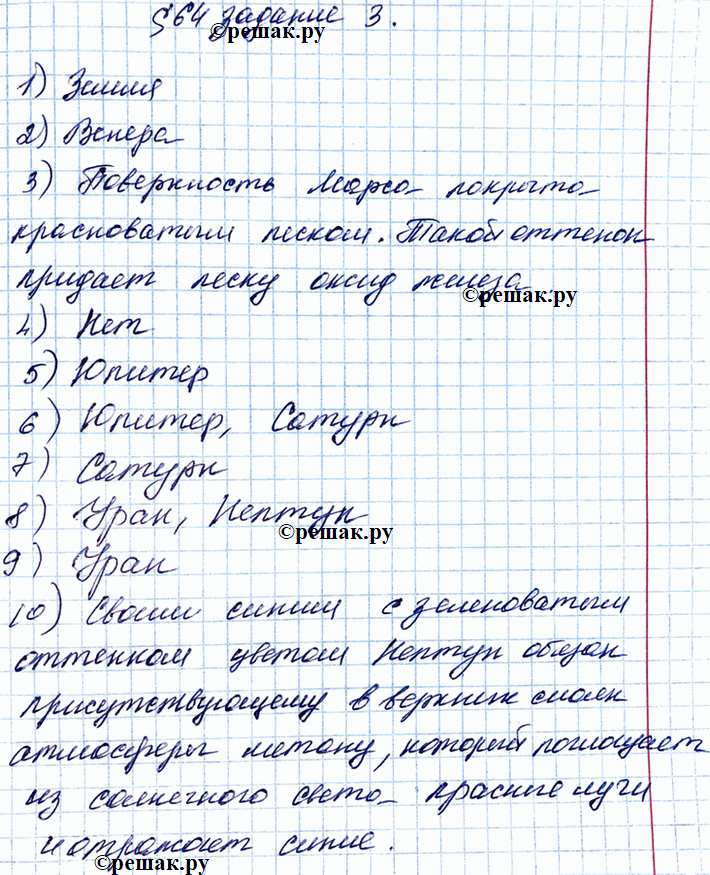 §64 задание 3.
©решак.ру
1) Земля
2) Венера
3) Поверхность Марса покрыта
красноватым песком. Такой оттенок
придает песку оксид железа
©решак.ру
4) Нет
5) Юпитер
6) Юпитер, Сатурн
7) Сатурн
8) Уран, Нептун
©решак.ру
9) Уран
10) Своим синим с зеленоватым
оттенком цветом Нептун обязан
присутствующему в верхних слоях
атмосферы метану, который поглощает
из солнечного света красные лучи
и отражает синие.
©решак.ру